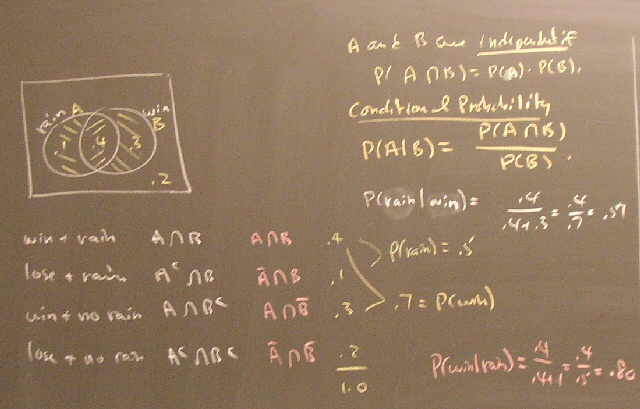 A and B are independent if
P(A∩B)=P(A)·P(B).
Conditional Probability
P(A|B)= P(A∩B)
P(B).
rain A
win
B
.1 .4 .3
.2
P(rain|win)= .4/.4+.3 = .4/.7 = .57
win + rain A∩B A∩B .4
P(rain) = .5
lose + rain Aᶜ∩B Ā∩B .1
win + no rain A∩Bᶜ A∩B̄ .3
.7 = P(win)
lose + no rain Aᶜ∩Bᶜ Ā∩B̄ .2
1.0
P(win|rain)= .4/.4+.1 = .4/.5 = .80